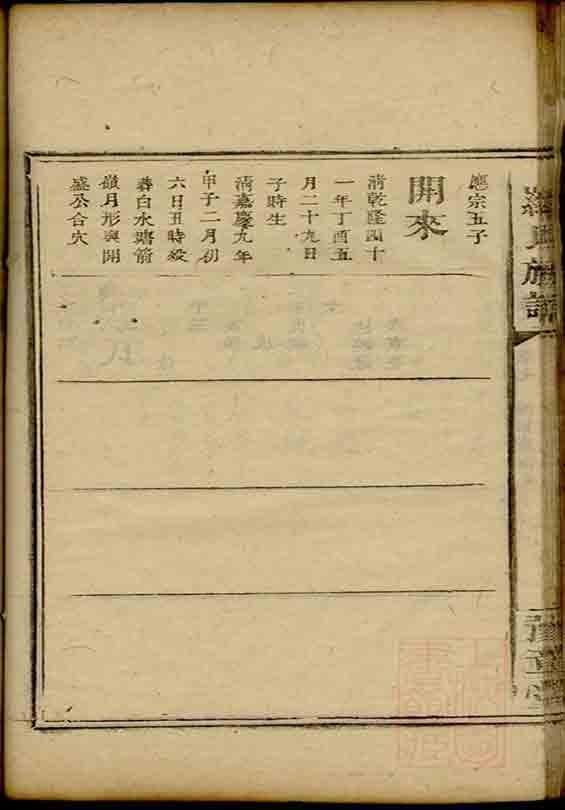 應宗五子
開來
清乾隆四十
一年丁酉五
月二十九日
子時生
清嘉慶九年
甲子二月初
六日丑時歿
葬白水塘箭
嶺月形與開
盛公合穴
氏族譜